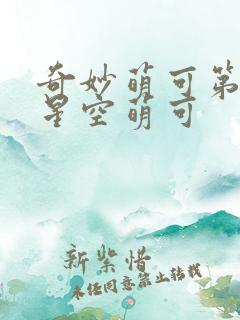 奇妙萌可第
星空萌可
新紫惜
未经同意禁止转载